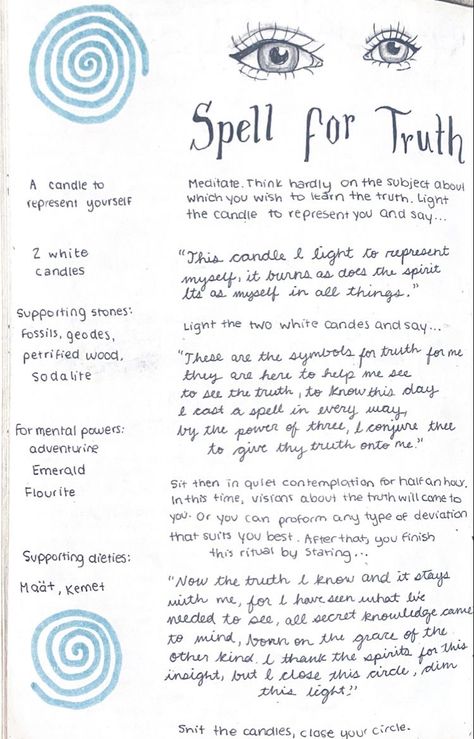 Spell for Truth
A candle to
represent yourself
2 white
candles
Supporting stones:
Fossils, geodes,
petrified wood,
Sodalite
For mental powers:
adventurine
Emerald
Flourite
Supporting dieties:
Maät, Kemet
Meditate. Think hardly on the subject about
which you wish to learn the truth. Light
the candle to represent you and say...
"This candle I light to represent
myself, it burns as does the spirit
Its as myself in all things."
Light the two white candes and say...
"These are the symbols for truth for me
they are here to help me see
to see the truth, to know this day
I cast a spell in every way,
by the power of three, I conjure thee
to give thy truth onto me."
Sit then in quiet contemplation for half an hour.
In this time, visions about the truth will come to
you. Or you can proform any type of deviation
that suits you best. After that, you finish
this ritual by staring...
"Now the truth I know and it stays
with me, for I have seen what I've
needed to see, all secret knowledge came
to mind, born on the grace of the
other kind. I thank the spirits for this
insight, but I close this circle, dim
this light."
Snit the candles, close your circle.